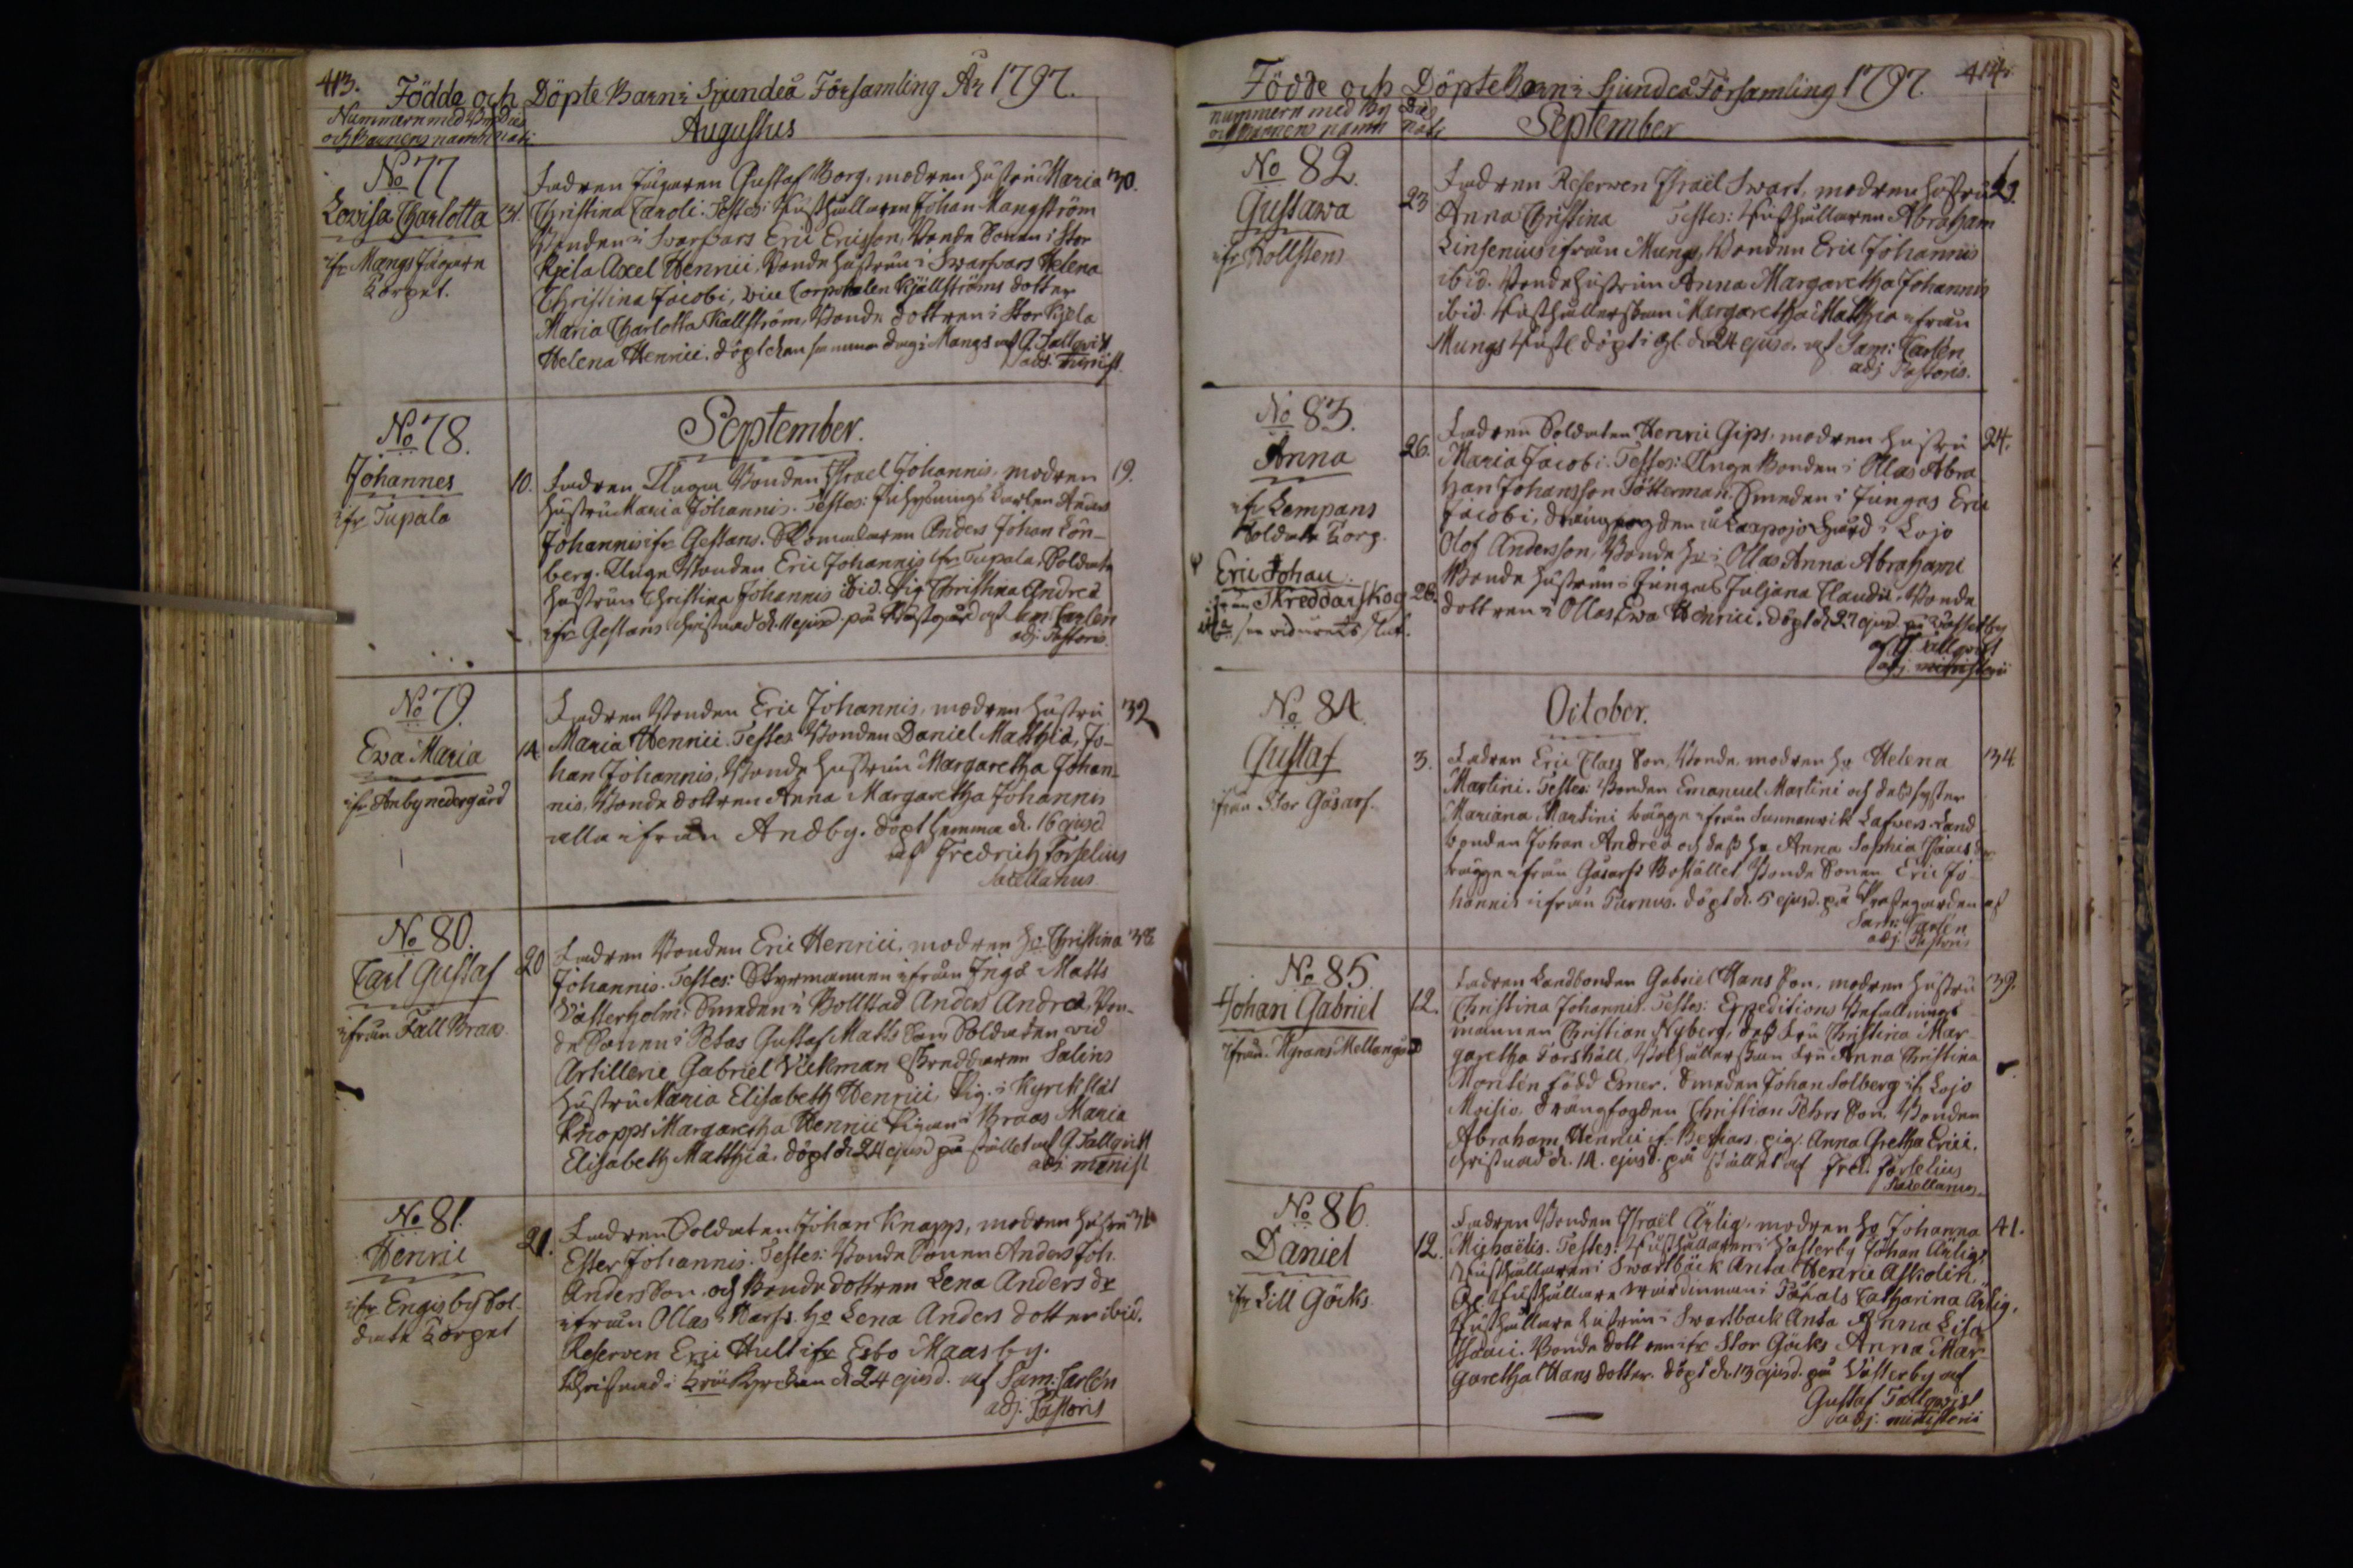 413. Födde och Döpte Barn i Sjundeå Församling År 1797.
Nummern med By Dies
och Barnens namn nati
Augustus
No 77
Lovisa Charlotta
ifr Mangs Jägare
Torpet.
31.
Fadren Jägaren Gustaf Borg, modren hustru Maria 30.
Christina Caroli. Testes: Rusthållaren Johan Mangström
Bonden i Svarfvars Eric Ericsson, Bonde Sonen i Stor
Kyela Axel Henrici, Bonde hustrun i Swarfvars Helena
Christina Jacobi, vice Corporalen Kjällströms dotter
Maria Charlotta Kallström, Bonde dottren i Stor Kyela
Helena Henrici. döpt den samma dag i Mangs af G. Tallqvist
adj. minist.
September.
No 78.
Johannes
ifr Tupala
10.
Fadren Unga Bonden Israel Johannis, modren 19.
hustru Maria Johannis. Testes: Inhysnings Karlen
Johannis ifr Gestans. Skomakaren Anders Johan Lön-
berg. Unge Bonden Eric Johannis ifr Tupala, Soldate
hustrun Christina Johannis ibid. Pig. Christina Andreæ
ifr Gestans Christnad d. 11 ejusd. på Prästgård af Sam. Carlén
adj. Pastoris.
No 79.
Ewa Maria
ifr Anbynedergård
14.
Fadren Bonden Eric Johannis, modren hustru 32
Maria Henrici. Testes Bonden Daniel Matthiæ, Jo-
han Johannis, Bonde hustrun Margaretha Johan-
nis, Bonde dottren Anna Margaretha Johannis
alla ifrån Andby. döpt hemma d. 16 ejusd
af Fredrich Forselius
Sacellanus.
No 80.
Carl Gustaf
ifrån Fall Braas
20
Fadren Bonden Eric Henrici, modren ho Christina 38
Johannis. Testes: Styrmannen ifrån Ingå Matts
Västerholm Smeden i Bollstad Anders Andreæ, Bon-
de Sonen i Petas Gustaf Matts Son, Soldaten vid
Artillerie Gabriel Vickman Skreddaren Salins
hustru Maria Elisabeth Henrici, Pig. i Kyrckstät
Knopps Margaretha Henrici Pigan i Braas Maria
Elisabeth Matthiæ. döpt d. 24 ejusd på stället af G. Tallqvist
adj. minist
No 81.
Henric
ifr Engisby Sol-
date Torpet
21.
Fadren Soldaten Johan Knapp, modren hustru 31
Ester Johannis. Testes: Bonde Sonen Anders Joh.
Anders Son, och Bonde dottren Lena Anders dr
ifrån Ollas. Karfs. ho Lena Anders dotter ibid.
Reserven Eric Hult ifr Esbo Maasby.
Christnad i Kyrckan d. 24 ejusd. af Sam. Carlén
adj. Pastoris
Födde och Döpte Barn i Sjundeå Församling 1797. 414.
nummern med By Dies
och Barnens namn nati
September
No 82.
Gustawa
ifr Kollstens
23
Fadren Reserven Israel Swart, modren hustru 29.
Anna Christina Testes: Rusthållaren Abraham
Linsenius ifrån Mungs, Bonden Eric Johannis
ibid. Bonde hustrun Anna Margaretha Johannis
ibid. Rusthållerskan Margaretha Matthiæ ifrån
Mungs döpt d. 24 ejusd. af Sam: Carlén
adj Pastoris.
No 83.
Anna
ifr Lempans
Soldate Torp.
26.
Eric Johan
ifrån Skreddarskog 26.
Fadren Soldaten Henric Gips, modren hustru 24.
Maria Jacobi. Testes: Unge Bonden i Ollas Abra
han Johansson Tötterman. Smeden i Jungas Eric
Jacobi, drängfogden å Laxpojo Gård i Lojo
Olof Andersson, Bonde ho i Ollas Anna Abrahami
Bonde hustrun i Jungas Juljana Claudii. Bonde
dottren i Ollas Ewa Henrici. döpt d. 27 ejusd. på Västerby
af G. Tallqvist
adj. ministerii
October.
No 84.
Gustaf
ifrån Stor Gåsarf.
3.
Fadren Eric Clas Son, Bonde, modren ho Helena 34.
Martini. Testes: Bonden Emanuel Martini och dess syster
Mariana Martini bägge ifrån Sunnanvik Land
bonden Johan Andreæ och dess ho Anna Sophia Isaacs
bägge ifrån Gåsarfs Bostället Bonde Sonen Eric Jo
hannis ifrån Purnus. döpt d. 5 ejusd. på Prästegården af
Sam: Carlén
adj. Pastoris
No 85.
Johan Gabriel
ifrån Myrans Mellangård
12.
Fadren Landbonden Gabriel Hans Son, modren hustru 39.
Christina Johannis. Testes: Expeditions Befallnings
mannen Christian Nyberg, dess Fru Christina Mar-
garetha Forshäll, Bokhållar Fru Anna Christina
Montén född Emer. Smeden Johan Solberg if. Lojo
Moisio, drängfogden Christian Pehrs Son, Bonden
Abraham Henrici if. Bethars, pig. Anna Gretha Erici.
Christnad d. 14. ejusd. på stället af Fred. Forselius
Sacellanus.
No 86.
Daniel
ifr Lill Göcks.
12.
Fadren Bonden Israel Ärlig, modren ho Johanna 41.
Michaelis. Testes: Rusthållaren i Västerby Johan Ärlig,
Rusthållaren i Swartbäck Anta Henric Askolin,
Rusthållare värdinnan i Påkals Catharina Ärlig,
Rusthållare hustrun i Swartback Anta Anna Lisa
Isaaci. Bonde Dottren ifr Stor Göcks Anna Mar-
garetha Hans dotter. döpt d. 13 ejusd. på Västerby af
Gustaf Tallqwist
adj. ministerii